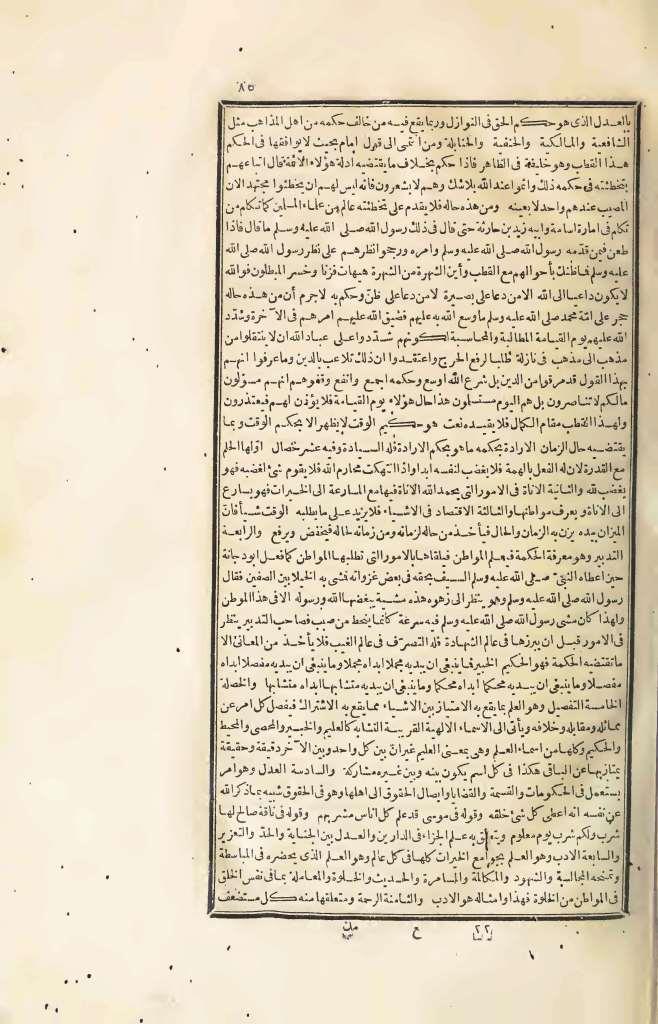 ٨٥
بالعدل الذى هو حكم الحق فى النوازل وربما يقع فيه من خالف حكمه من أهل المذاهب مثل
الشافعية والمالكية والحنفية والحنابلة ومن انتمى الى قول امام بحيث لا يوافقها فى الحكم
هذا القطب وهو خليفة فى الظاهر فاذا حكم بخلاف ما يقتضيه ادلة هؤلاء الائمة قال اتباعهم
بتخطئته فى حكمه ذلك واثموا عند الله بلا شك وهم لا يشعرون فانه ليس لهم ان يخطئوا مجتهدا لان
المصيب عندهم واحد لا بعينه ومن هذه حاله فلا يقدم على تخطئة عالم من علماء المسلمين كما تكلم من
تكلم فى امارة اسامة وابيه زيد بن حارثة حتى قال فى ذلك رسول الله صلى الله عليه وسلم ما قال فاذا
طعن فيمن قدمه رسول الله صلى الله عليه وسلم وامره ورجحوا نظرهم على نظر رسول الله صلى الله
عليه وسلم فما ظنك بأحوالهم مع القطب وأين الشهرة من الشهرة هيهات فزنا وخسر المبطلون فوالله
لا يكون داعيا الى الله الا من دعا على بصيرة لا من دعا على ظن وحكم به لا جرم أن من هذه حاله
حجر على امة محمد صلى الله عليه وسلم ما وسع الله به عليهم فضيق الله عليهم امرهم فى الآخرة وشدد
الله عليهم يوم القيامة المطالبة والمحاسبة لكونهم شددوا على عباد الله ان لا ينتقلوا من
مذهب الى مذهب فى نازلة طلبا لرفع الحرج واعتقدوا ان ذلك تلاعب بالدين وما عرفوا انهم
بهذا القول قد مرقوا من الدين بل شرع الله اوسع وحكمه اجمع وانفع وقفوهم انهم مسؤلون
ما لكم لا تناصرون بل هم اليوم مستسلمون هذا حال هؤلاء يوم القيامة فلا يؤذن لهم فيعتذرون
ولهذا القطب مقام الكمال فلا يقيده نعت هو حكيم الوقت لا يظهر الا بحكم الوقت وبما
يقتضيه حال الزمان الارادة بحكمه ما هو بحكم الارادة فله السيادة وفيه عشر خصال اولها الحلم
مع القدرة لان له الفعل بالهمة فلا يغضب لنفسه ابدا واذا انتهكت محارم الله فلا يقوم شئ لغضبه فهو
يغضب لله والثانية الاناة فى الامور التى يحمد الله الاناة فيها مع المسارعة الى الخيرات فهو يسارع
الى الاناة ويعرف مواطنها والثالثة الاقتصاد فى الاشياء فلا يزيد على ما يطلبه الوقت شيأ فان
الميزان بيده يزن به الزمان والحال فيأخذ من حاله لزمانه ومن زمانه لحاله فيخفض ويرفع والرابعة
التدبير وهو معرفة الحكمة فيعلم المواطن فيلقاها بالامور التى تطلبها المواطن كما فعل ابو دجانة
حين اعطاه النبى صلى الله عليه وسلم السيف بحقه فى بعض غزواته فمشى به الخيلا بين الصفين فقال
رسول الله صلى الله عليه وسلم وهو ينظر الى زهوه هذه مشية يبغضها الله ورسوله الا فى هذا الموطن
ولهذا كان مشى رسول الله صلى الله عليه وسلم فيه سرعة كانما ينحط من صبب فصاحب التدبير ينظر
فى الامور قبل ان يبرزها فى عالم الشهادة فله التصرف فى عالم الغيب فلا يأخذ من المعانى الا
ما تقتضيه الحكمة فهو الحكيم الخبير فما ينبغى ان يبديه مجملا ابداه مجملا وما ينبغى ان يبديه مفصلا ابداه
مفصلا وما ينبغى ان يبديه محكما ابداه محكما وما ينبغى ان يبديه متشابها ابداه متشابها والخصلة
الخامسة التفصيل وهو العلم بما يقع به الامتياز بين الاشياء مما يقع به الاشتراك فيفصل كل امر عن
مماثله ومقابله وخلافه ويأتى الى الاسماء الالهية القريبة التشابه كالعليم والخبير والمحصى والمحيط
والحكيم وكلها من اسماء العلم وهى بمعنى العليم غير ان بين كل واحد وبين الآخر دقيقة وحقيقة
يمتاز بها عن الباقى هكذا فى كل اسم يكون بينه وبين غيره مشاركة والسادسة العدل وهو امر
يستعمل فى الحكومات والقسمة والقضايا وايصال الحقوق الى اهلها وهو فى الحقوق شبيه بما ذكر الله
عن نفسه انه اعطى كل شئ خلقه وقوله فى موسى قد علم كل اناس مشربهم وقوله فى ناقة صالح لها
شرب ولكم شرب يوم معلوم ويتعلق به علم الجزاء فى الدارين والعدل بين الجناية والحد والتعزير
والسابعة الادب وهو العلم بجوامع الخيرات كلها فى كل عالم وهو العلم الذى يحضره فى المباسطة
ويمنحه المجالسة والشهود والمكالمة والمسامرة والحديث والخلوة والمعاملة بما فى نفس الخلق
فى المواطن من الخلوة فهذا وامثاله هو الادب والثامنة الرحمة ومتعلقها منه كل مستضعف
٢٢ ع مك